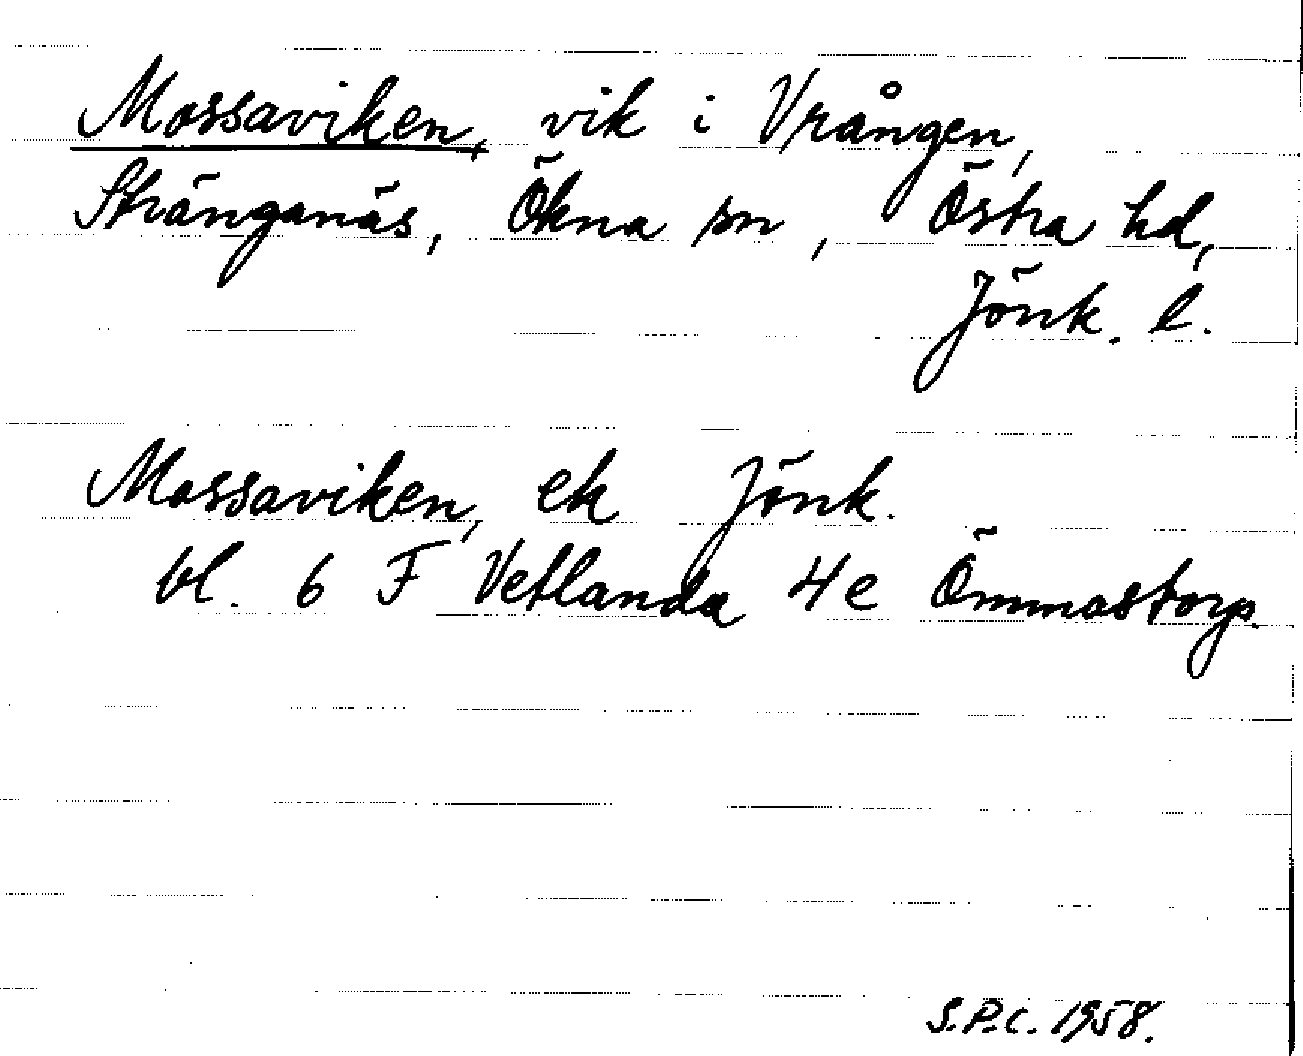 Mossaviken, vik i Vrången,
Stränganäs, Ökna sn, Östra hd,
Jönk. l.
Mossaviken, ek Jönk.
bl. 6 F Vetlanda 4e Ömmastorp.
S.P.C. 1958.